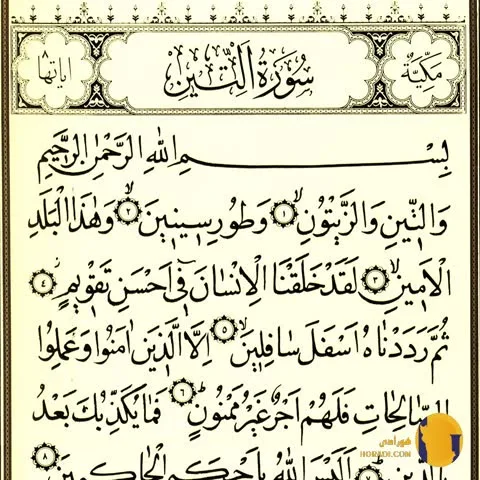 مَكِّيَّةٌ سُورَةُ التِّينِ اٰيَاتُهَا ٨
بِسْمِ اللّٰهِ الرَّحْمٰنِ الرَّحِيمِ
وَالتِّينِ وَالزَّيْتُونِۙ ١ وَطُورِ سِينِينَۙ ٢ وَهٰذَا الْبَلَدِ
الْاَمِينِۙ ٣ لَقَدْ خَلَقْنَا الْاِنْسَانَ فِٓي اَحْسَنِ تَقْوِيمٍۘ ٤
ثُمَّ رَدَدْنَاهُ اَسْفَلَ سَافِلِينَۙ ٥ اِلَّا الَّذِينَ اٰمَنُوا وَعَمِلُوا
الصَّالِحَاتِ فَلَهُمْ اَجْرٌ غَيْرُ مَمْنُونٍۜ ٦ فَمَا يُكَذِّبُكَ بَعْدُ
بِالدِّينِۜ ٧ اَلَيْسَ اللّٰهُ بِاَحْكَمِ الْحَاكِمِينَ ٨
HORADI.COM